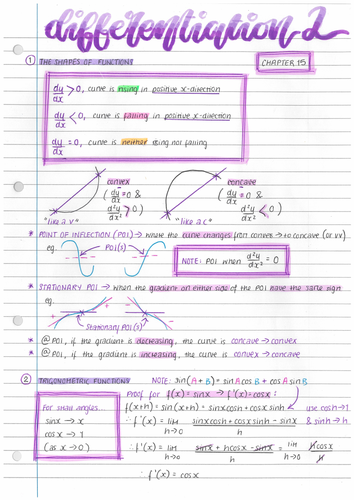 differentiation 2
① THE SHAPES OF FUNCTIONS
CHAPTER 15
dy/dx > 0, curve is rising in positive x-direction
dy/dx < 0, curve is falling in positive x-direction
dy/dx = 0, curve is neither rising not falling
convex
(dy/dx = 0 & d²y/dx² > 0)
"like a V"
concave
(dy/dx = 0 & d²y/dx² < 0)
"like a C"
* POINT OF INFLECTION (POI) → where the curve changes from convex → to concave (or vv)
eg.
POI(s)
NOTE: POI when d²y/dx² = 0
* STATIONARY POI → when the gradient on either side of the POI have the same sign
eg.
+ + - -
Stationary POI(s)
* @ POI, if the gradient is decreasing, the curve is concave → convex
* @ POI, if the gradient is increasing, the curve is convex → concave
② TRIGONOMETRIC FUNCTIONS
NOTE: sin(A+B) = sinAcosB + cosAsinB
For small angles...
sinx → x
cosx → 1
(as x → 0)
Proof for f(x) = sinx → f'(x) = cosx:
f(x+h) = sin(x+h) = sinxcosh + cosxsinh
use cosh → 1
& sinh → h
∴ f'(x) = lim h→0 (sinxcosh + cosxsinh - sinx)/h
∴ f'(x) = lim h→0 (sinx + hcosx - sinx)/h = lim h→0 hcosx/h
∴ f'(x) = cosx